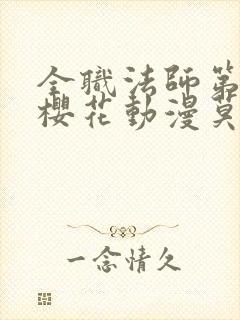 全職法師第
櫻花動漫莫
一念情久